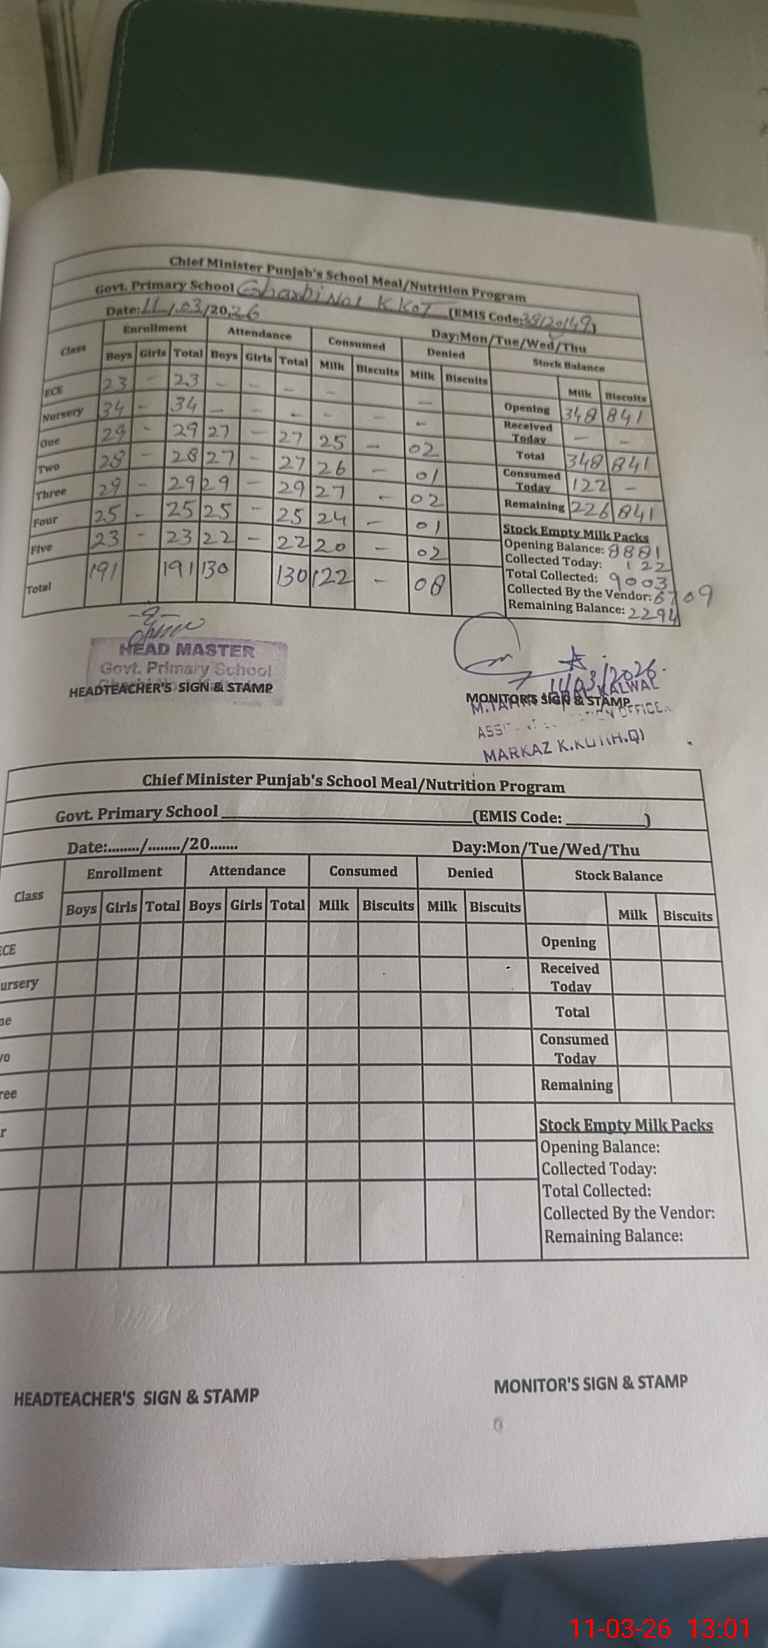 Chief Minister Punjab's School Meal/Nutrition Program
Govt. Primary School Gharbi No1 K KOT (EMIS Code: 38120149)
Date: 11/03/2026 Day:Mon/Tue/Wed/Thu
Class Enrollment Attendance Consumed Denied Stock Balance
Boys Girls Total Boys Girls Total Milk Biscuits Milk Biscuits Milk Biscuits
ECE 23 - 23 - - - - - Opening 348 841
Nursery 34 - 34 - - - - - - Received Today - -
One 29 - 29 27 - 27 25 - 02 Total 348 841
Two 28 - 28 27 - 27 26 - 01 Consumed Today 122 -
Three 29 - 29 29 - 29 27 - 02 Remaining 226 841
Four 25 - 25 25 - 25 24 - 01 Stock Empty Milk Packs
Five 23 - 23 22 - 22 20 - 02 Opening Balance: 8881
Total 191 191 130 130 122 - 08 Collected Today: 122
Total Collected: 9003
Collected By the Vendor: 6709
Remaining Balance: 2294
HEAD MASTER
Govt. Primary School
HEADTEACHER'S SIGN & STAMP
11/03/2026.
MONITOR'S SIGN & STAMP
MARKAZ K.KOT(H.Q)
Chief Minister Punjab's School Meal/Nutrition Program
Govt. Primary School (EMIS Code: )
Date:......../......../20....... Day:Mon/Tue/Wed/Thu
Class Enrollment Attendance Consumed Denied Stock Balance
Boys Girls Total Boys Girls Total Milk Biscuits Milk Biscuits Milk Biscuits
ECE Opening
ursery Received Today
ne Total
wo Consumed Today
ree Remaining
r Stock Empty Milk Packs
Opening Balance:
Collected Today:
Total Collected:
Collected By the Vendor:
Remaining Balance:
HEADTEACHER'S SIGN & STAMP MONITOR'S SIGN & STAMP
11-03-26 13:01